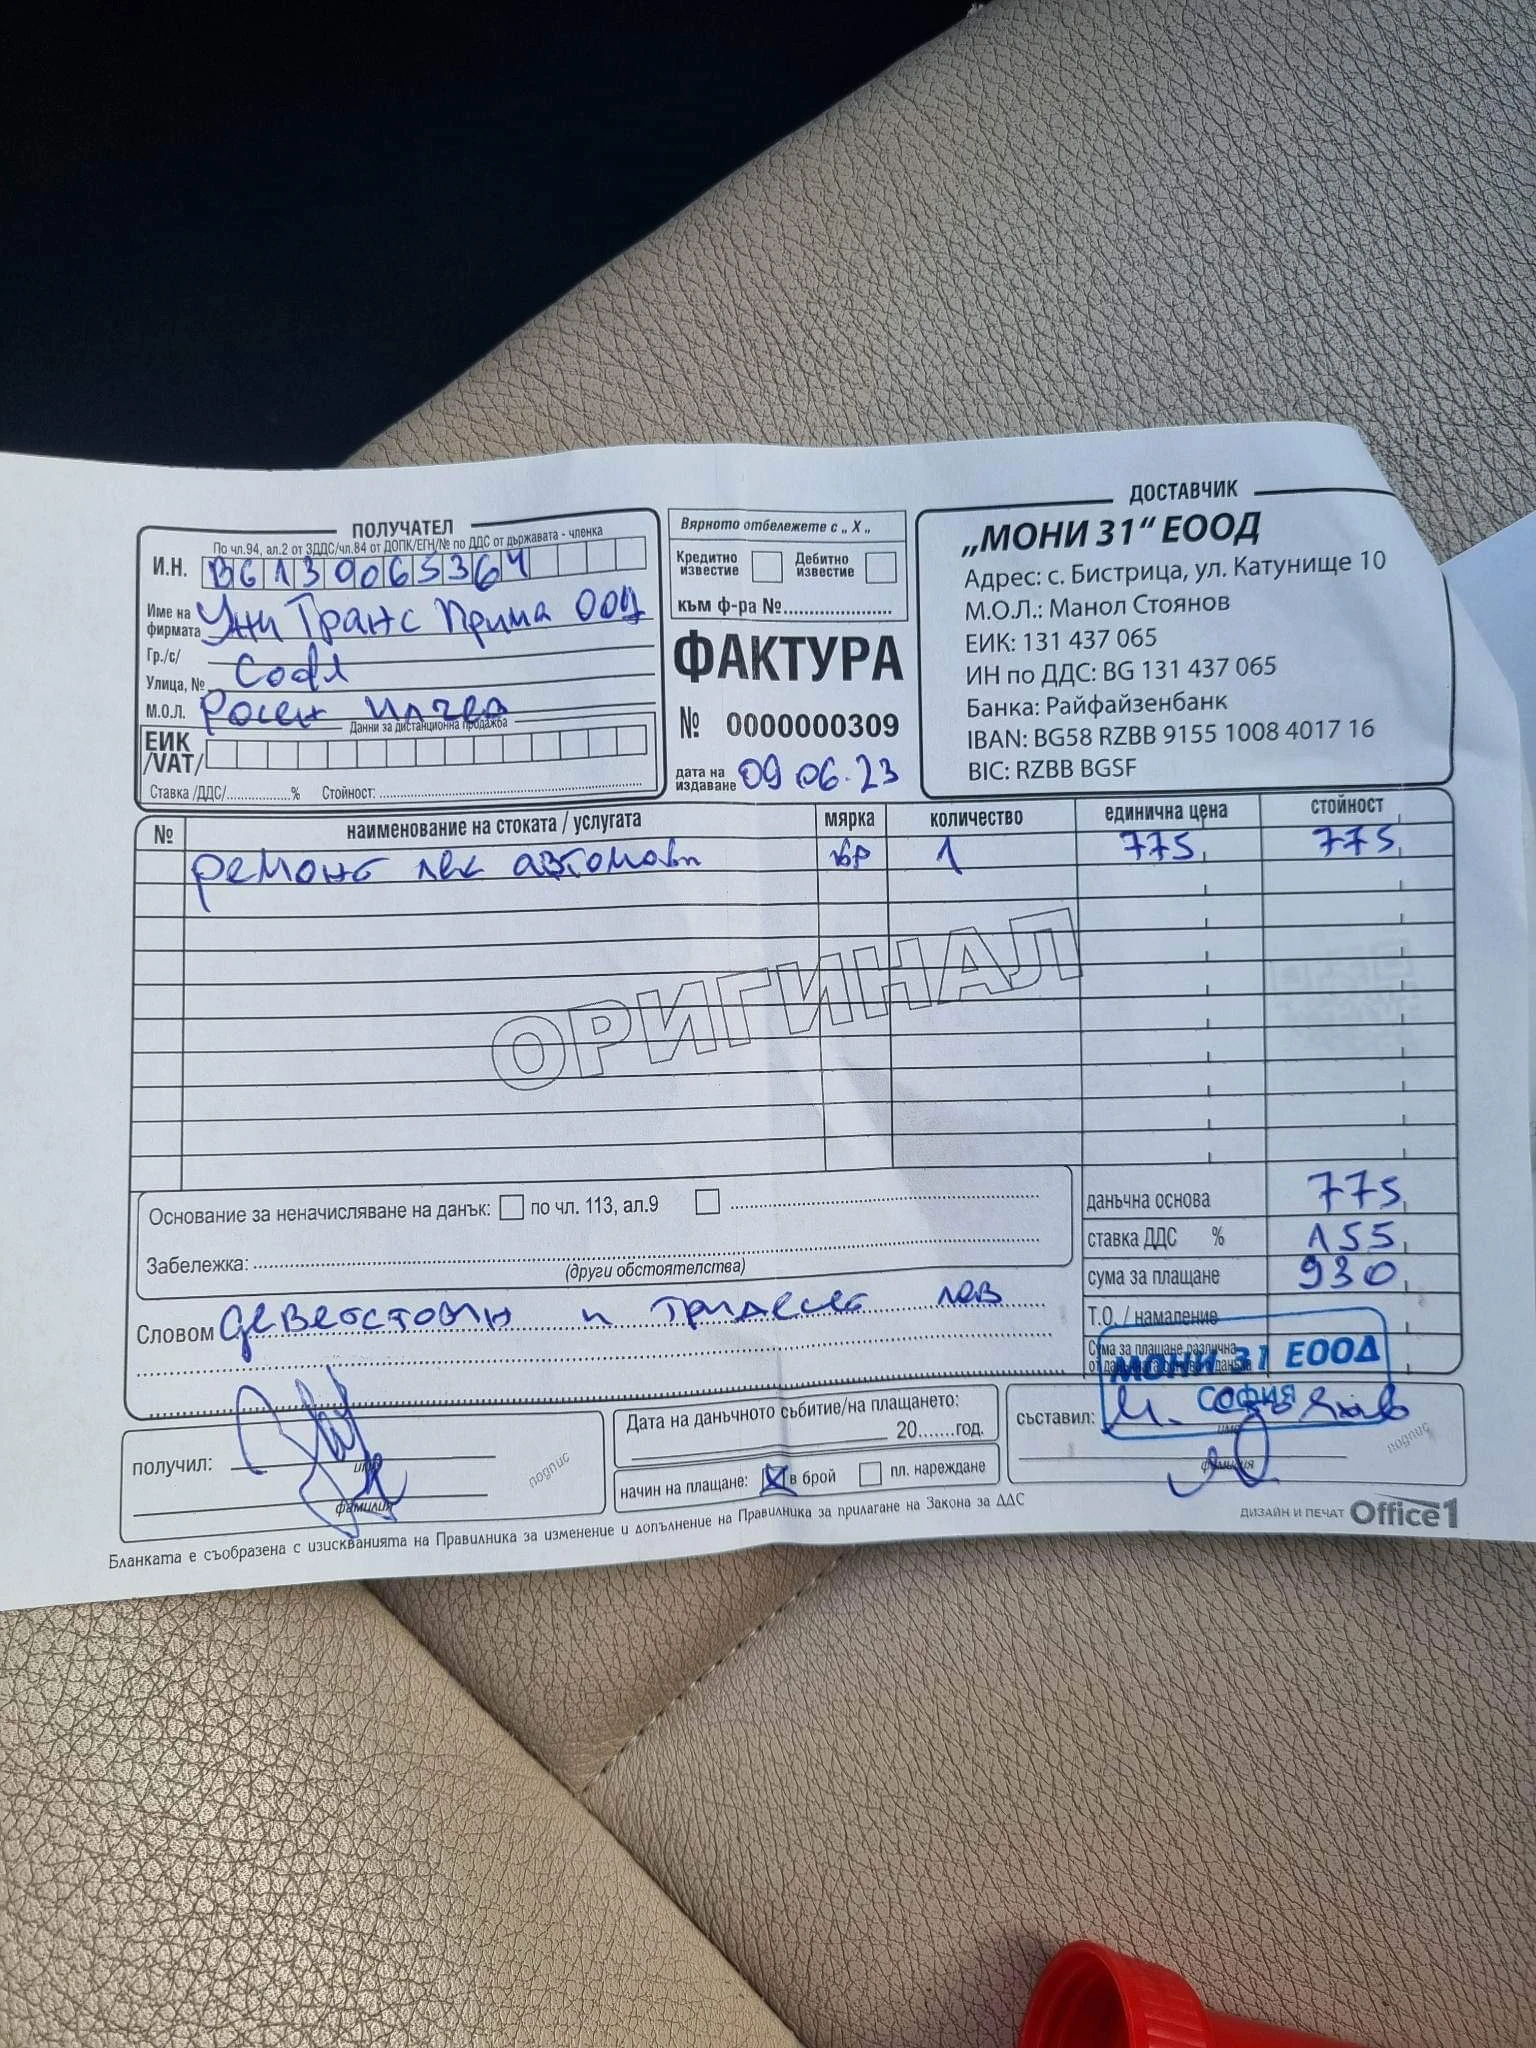 ПОЛУЧАТЕЛ
По чл.94, ал.2 от ЗДДС/чл.84 от ДОПК/ЕГН/№ по ДДС от държавата - членка
И.Н. BG130065364
Име на фирмата Уни Транс Прима ООД
Гр./с/
Улица, № София
М.О.Л. Росен Илчев
Данни за дистанционна продажба
ЕИК /VAT/
Ставка /ДДС/..................% Стойност: ..................
Вярното отбележете с „ X „
Кредитно известие Дебитно известие
към ф-ра №......................
ФАКТУРА
№ 0000000309
дата на издаване 09 06.23
ДОСТАВЧИК
„МОНИ 31“ ЕООД
Адрес: с. Бистрица, ул. Катунище 10
М.О.Л.: Манол Стоянов
ЕИК: 131 437 065
ИН по ДДС: BG 131 437 065
Банка: Райфайзенбанк
IBAN: BG58 RZBB 9155 1008 4017 16
BIC: RZBB BGSF
№ наименование на стоката / услугата мярка количество единична цена стойност
ремонт лек автомобил бр 1 775, 775,
ОРИГИНАЛ
Основание за неначисляване на данък: по чл. 113, ал.9
Забележка:
(други обстоятелства)
Словом деветстотин и тридесет лев
данъчна основа 775,
ставка ДДС % 155,
сума за плащане 930,
Т.О. / намаление
Сума за плащане различна от данъчната основа и данъка
МОНИ 31 ЕООД
СОФИЯ
получил:
име
фамилия
подпис
Дата на данъчното събитие/на плащането:
20.......год.
начин на плащане: X в брой пл. нареждане
съставил: М. Стоянов
име
фамилия
подпис
Бланката е съобразена с изискванията на Правилника за изменение и допълнение на Правилника за прилагане на Закона за ДДС
ДИЗАЙН И ПЕЧАТ Office1